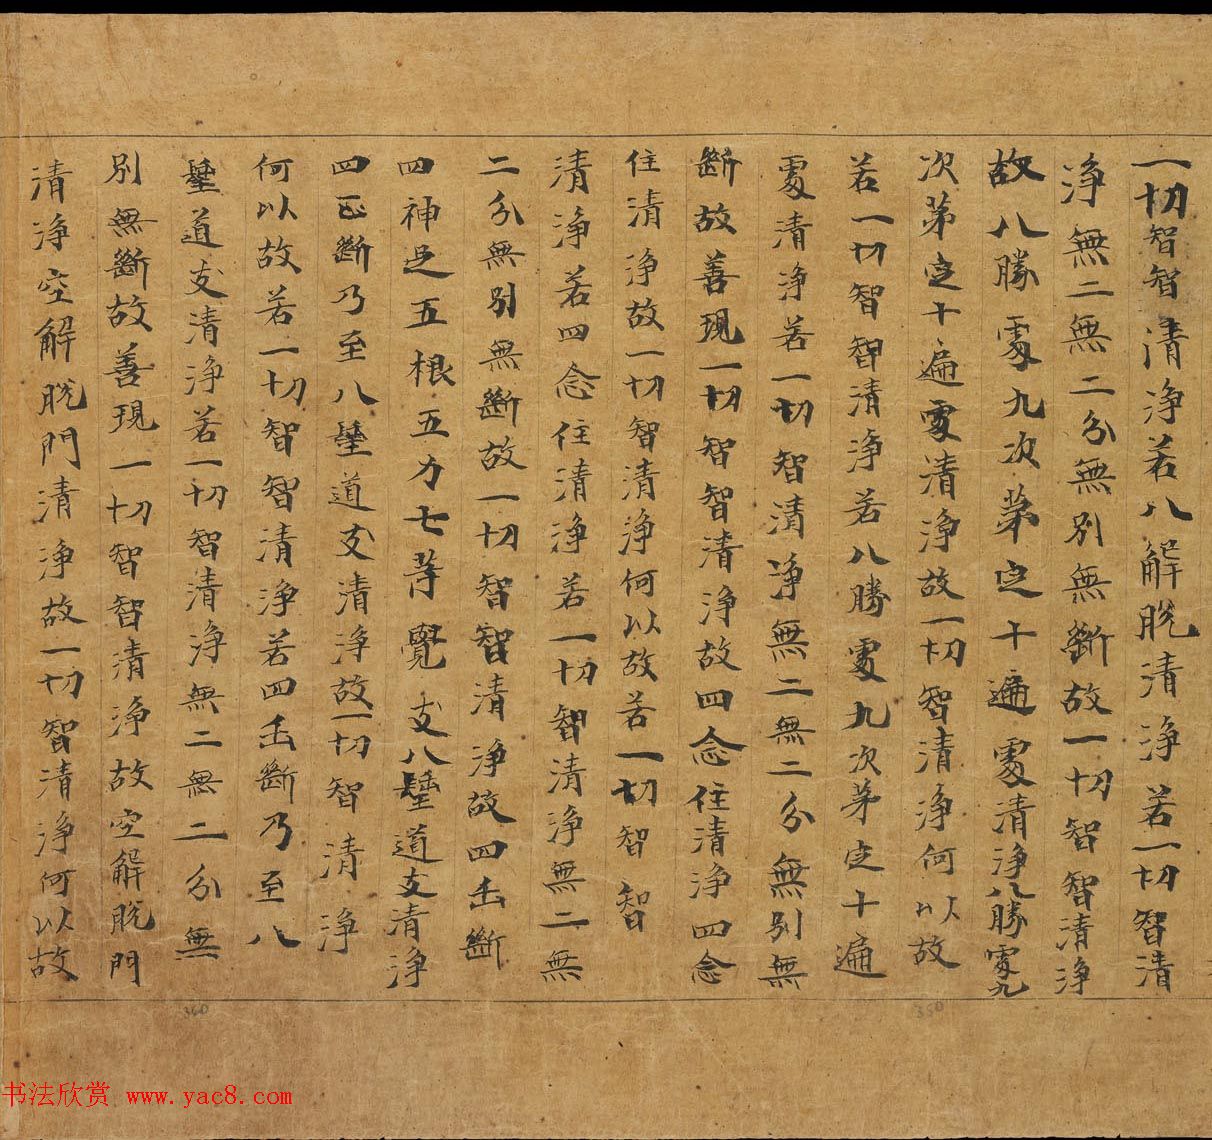 一切智智清淨若八解脫清淨若一切智清
淨無二無二分無別無斷故一切智智清淨
故八勝處九次第定十遍處清淨八勝處九
次第定十遍處清淨故一切智清淨何以故
若一切智智清淨若八勝處九次第定十遍
處清淨若一切智清淨無二無二分無別無
斷故善現一切智智清淨故四念住清淨四念
住清淨故一切智清淨何以故若一切智智
清淨若四念住清淨若一切智清淨無二無
二分無別無斷故一切智智清淨故四正斷
四神足五根五力七等覺支八聖道支清淨
四正斷乃至八聖道支清淨故一切智清淨
何以故若一切智智清淨若四正斷乃至八
聖道支清淨若一切智清淨無二無二分無
別無斷故善現一切智智清淨故空解脫門
清淨空解脫門清淨故一切智清淨何以故
350
360
书法欣赏 www.yac8.com